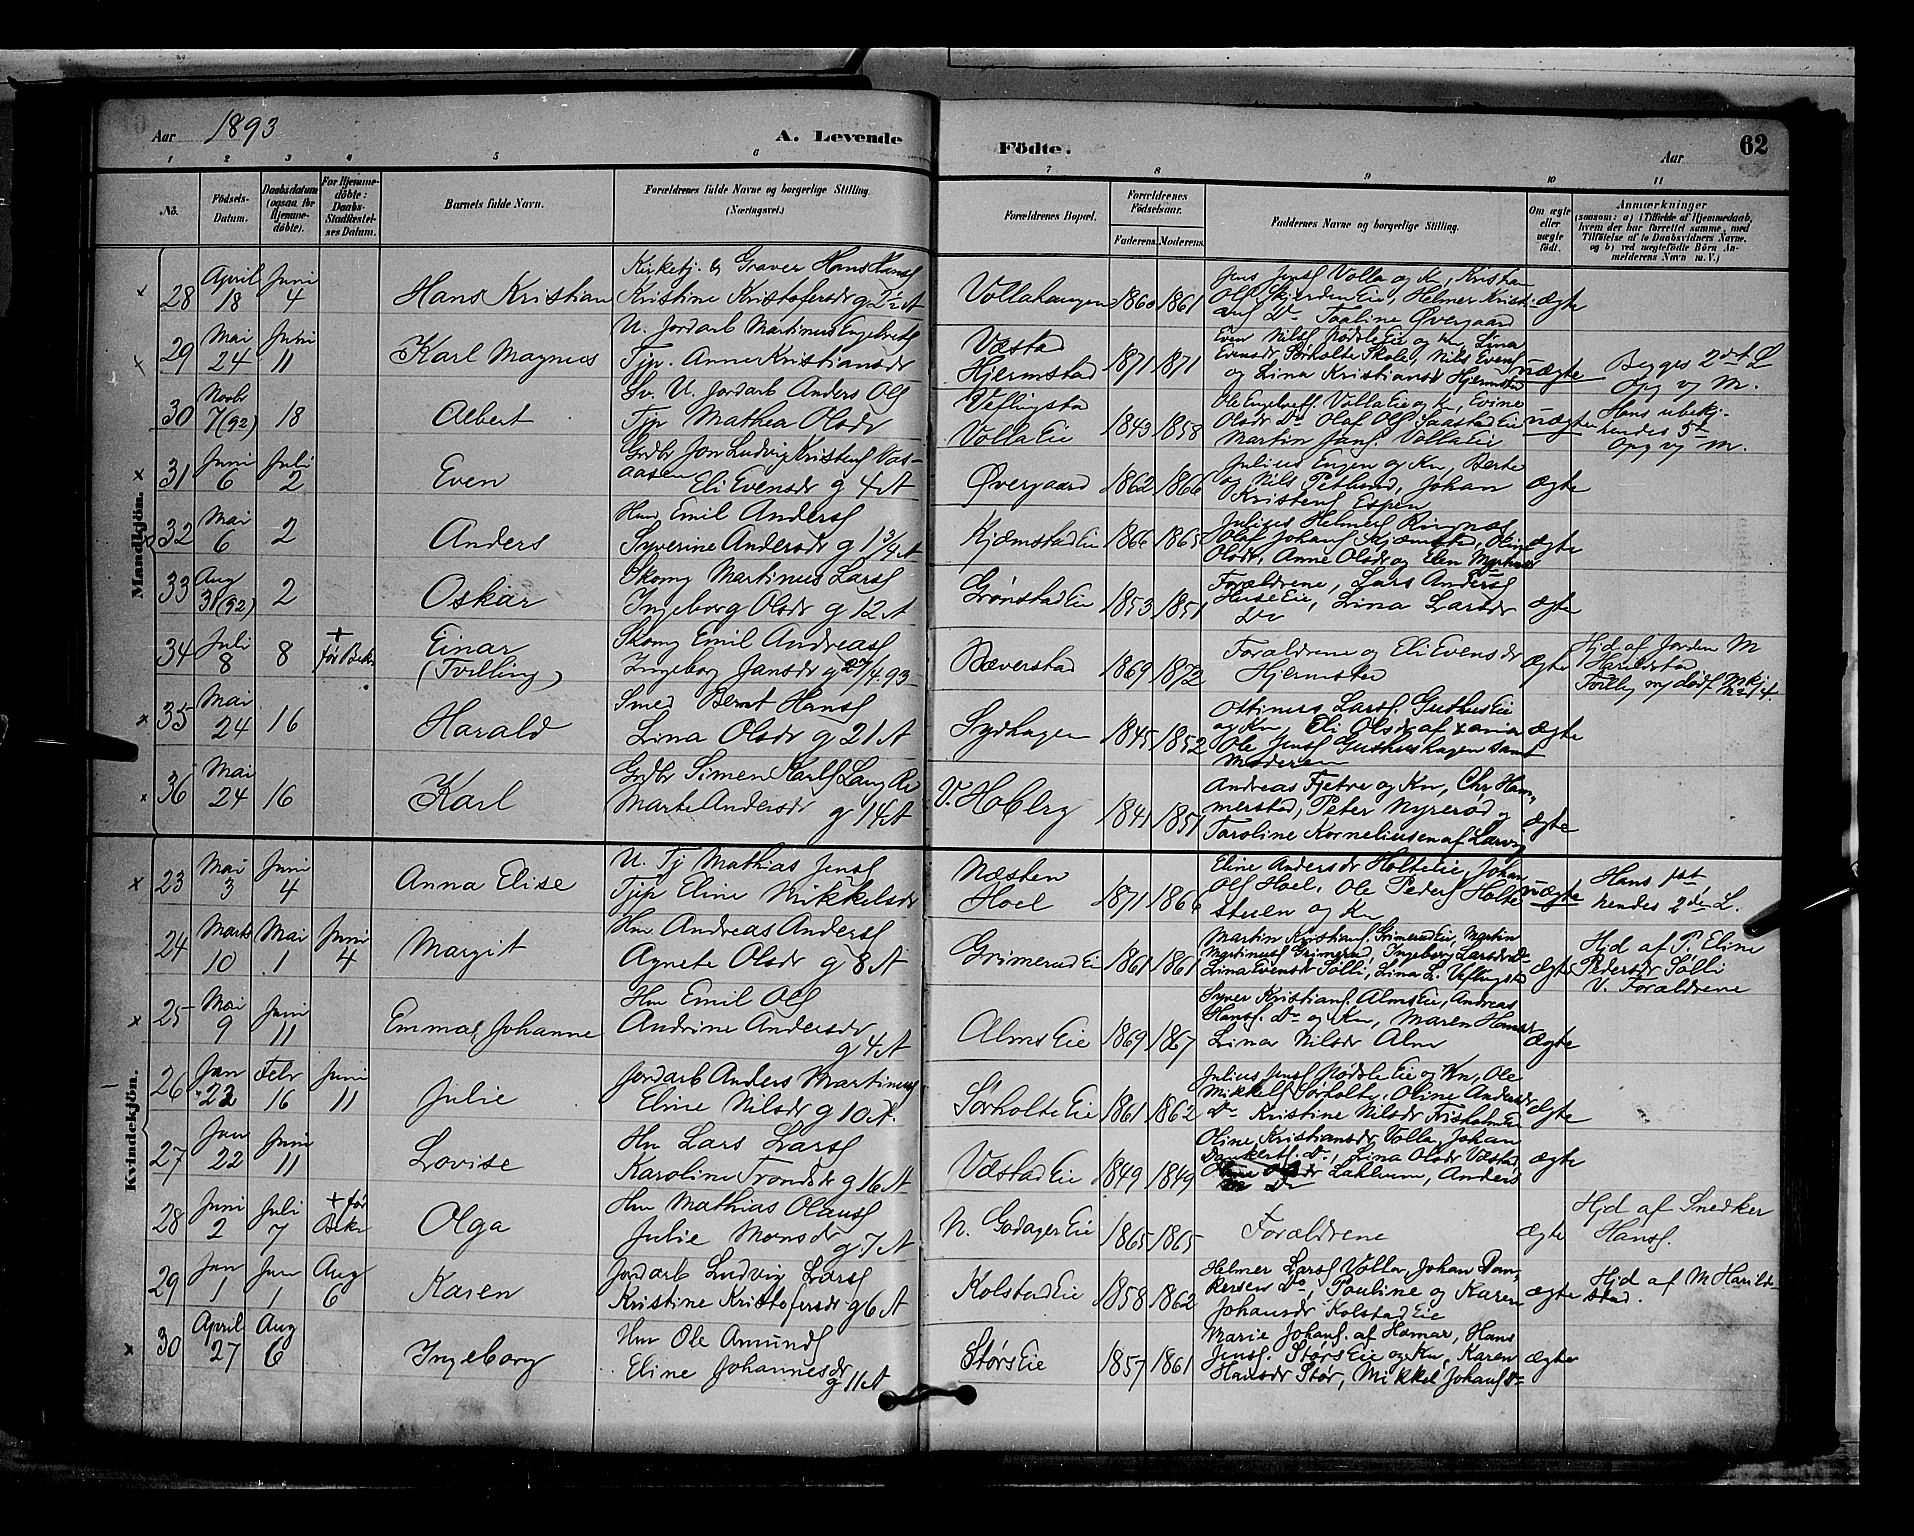 Aar 1893 A. Levende Födte. Aar 62
1 2 3 4 5 6 7 8 9 10 11
No. Födsels-Datum. Daabsdatum (ogsaa for Hjemmedöbte). For Hjemmedöbte: Daabs-Stadfæstelses Datum. Barnets fulde Navn. Forældrenes fulde Navne og borgerlige Stilling. (Næringsvei.) Forældrenes Bopæl. Forældrenes Födselsaar. Faderens. Moderens. Faddernes Navne og borgerlige Stilling. Om ægte eller uægte födt. Anmærkninger (saasom: a) i Tilfælde af Hjemmedaab, hvem der har forrettet samme, med Tilföielse af to Daabsvidners Navne, og b) ved uægtefödte Börn Anmelderens Navn m. V.)
Mandkjön.
28 April 18 Juni 4 Hans Kristian Kirketj. & Graver Hans Hansf
Kristine Kristofersdr g 2½ A Vollahaugen 1860 1861 Jens Jensf Volla og Kn, Kristian
Olf Skjerden Eie, Helmer Kristi-
anf Do Pauline Øvergaard ægte
29 Mai 24 Juni 11 Karl Magnus U. Jordarb Martinus Engebretsf
Tjp. Anne Kristiansdr Væstad
Hjermstad 1871 1871 Even Nilsf Nodsle Eie og Kn, Lina
Evensdr Sørholte Skole, Nils Evensf
og Lina Kristiansdr Hjermstad uægte Begges 2det L
Opg vj M.
30 Novbr 7 (92) 18 Albert Gv. U. Jordarb Anders Olf
Tjp Mathea Olsdr Veflingsta
Volla Eie 1843 1858 Ole Engebretf. Volla Eie og Kn, Evine
Olsdr Do Olaf Olf Saastad Eie
Martin Jansf Volla Eie uægte Hans ubekj.
hendes 5te
Opg vj M.
31 Juni 6 Juli 2 Even Grdbr Jon Ludvig Kristensf Vas-
aasen Eli Evensdr g 4 A Øvergaard 1862 1866 Julius Engen og Kn, Berte
og Nils Petlund, Johan
Kristensf Espen ægte
32 Mai 6 2 Anders Hm Emil Andersf
Syverine Andersdr g 1 3/4 A Kjæmstad Eie 1866 1865 Julius Helmers Ringnæs
Olaf Johansf Kjæmstad, Oline
Olsdr, Anne Olsdr og Elen ægte
33 Aug 31 (92) 2 Oskar Skomg Martinus Larsf
Ingeborg Olsdr g 12 A Grønstad Eie 1853 1851 Forældrene, Lars Andersf
Huse Eie, Lina Larsdr
Do ægte
34 Juli 8 8 + før Bekr Einar
(Tvilling) Skomg Emil Andreasf
Ingeborg Jansdr g 27/4 93 Bæverstad 1869 1872 Forældrene og Eli Evensdr
Hjermstad ægte Hjd af Jordm M
Harildstad
35 Mai 24 16 Harald Smed Bernt Hansf
Lina Olsdr g 21 A Sydhagen 1845 1852 Ottinius Larsf. Guthus Eie
og Kn Eli Olsdr af Xania
Ole Jensf Guthushagen samt
Moderen ægte
36 Mai 24 16 Karl Grdbr Simen Karlsf Lang Re
Marte Andersdr g 14 A V. Hoberg 1841 1851 Andreas Fjetre og Kn, Chr Ham-
merstad, Peter Nyrerød og
Taroline Korneliusen af Larvig ægte
Kvindekjön.
23 Mai 3 Juni 4 Anna Elise U. Tj Mathias Jensf
Tjp Eline Mikkelsdr Næsten
Hoel 1871 1866 Eline Andersdr Holtelie, Johan
Olf Hoel, Ole Pedersf Holte
stuen og Kn uægte Hans 1ste
hendes 2det L.
24 Marts 10 Mai 1 Juni 4 Margit Hm Andreas Andersf
Agnete Olsdr g 8 A Grimerud Eie 1861 1861 Martin Kristiansf. Grimerud Eie, Martin
Martinusf Grimerud, Ingeborg Larsdr Do
Lina Evensdr Solli, Lina L. Veflingsta ægte Hjd af P. Eline
Pedersdr Solli
V. Forældrene
25 Mai 9 Juni 11 Emma Johanne Hm Emil Olf
Andrine Andersdr
g 4 A Alms Eie 1869 1867 Syver Kristiansf. Alms Eie, Andreas
Hansf. Do og Kn, Maren Hansdr
Lina Nilsdr Alm ægte
26 Jan 22 Febr 16 Juni 11 Julie Jordarb Anders Martinusf
Eline Nilsdr g 10 A. Sørholte Eie 1861 1862 Julius Jensf Nodsle Eie og Kn, Ole
Mikkelsf Sørholte, Oline Andersdr
Do Kristine Nilsdr Frisholm Eie ægte
27 Jan 22 Juni 11 Lovise Hm Lars Larsf
Karoline Trondsdr g 16 A Væstad Eie 1849 1849 Oline Kristiansdr Volla, Johan
Dankertf. Do, Lina Olsdr Væstad,
Lahlum, Anders
Do ægte
28 Juni 2 Juli 7 + før Bekr Olga Hm Mathias Olausf
Julie Monsdr
g 7 A N. Godager Eie 1865 1865 Forældrene ægte Hjd af Snedker
Hansf.
29 Jan 1 Jan 1 Aug 6 Karen Jordarb Ludvig Larsf
Kristine Kristofersdr g 6 A Kolstad Eie 1858 1862 Helmer Larsf Volla, Johan Dan-
kersen Do, Pauline og Karen
Johansdr Kolstad Eie ægte Hjd af M Harild-
stad.
30 April 27 Aug 6 Ingeborg Hm Ole Amundf
Eline Johannesdr
g 11 A Størs Eie 1857 1861 Marie Johansf. af Hamar, Hans
Jensf. Størs Eie og Kn, Karen
Hansdr Stør, Mikkel Johansf Do ægte